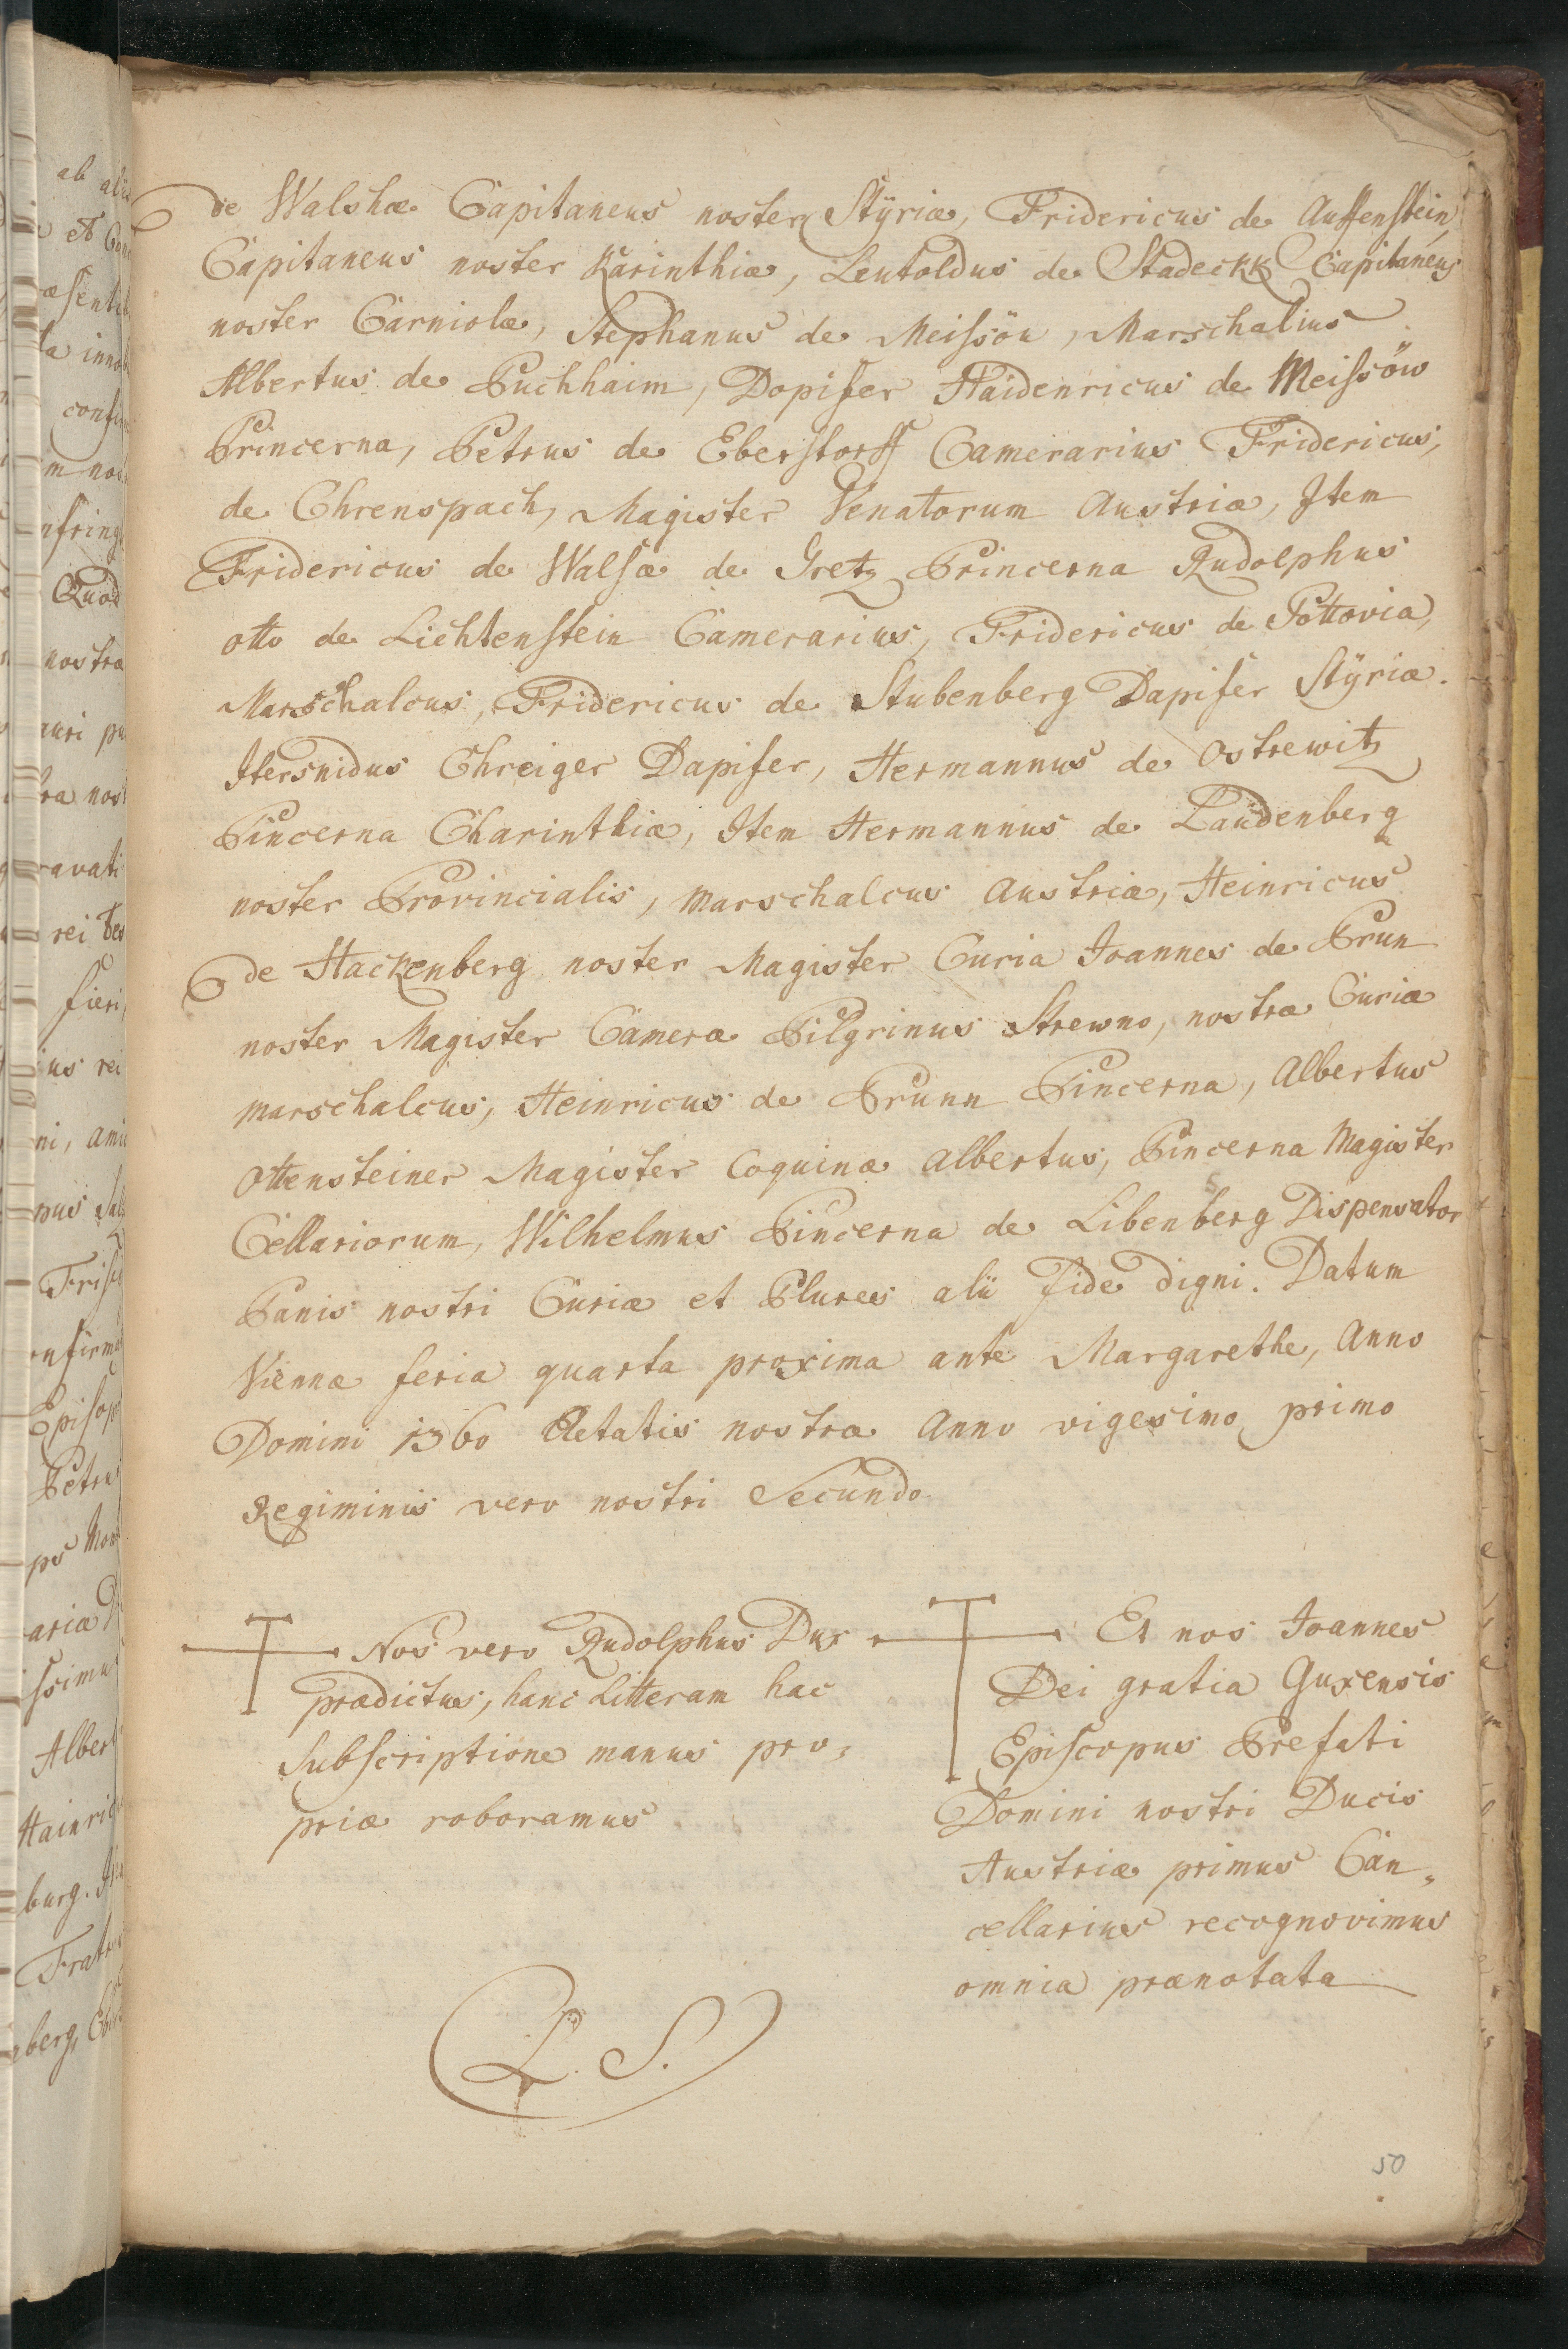 de Walshæ Capitaneus noster Styriæ, Fridericus de Auffenstein
Capitaneus noster Karinthiæ, Leutoldus de Stadeckk Capitaneus
noster Carniolæ, Stephanus de Meissöu, Marschalius
Albertus de Puchhaim, Dopifer Haidenricus de Meissöw
Princerna, Petrus de Eberstorff Camerarius Fridericus,
de Chrenspach, Magister Venatorum Austriæ, Item
Fridericus de Walsæ de Gretz Princerna Rudolphus
otto de Lichtenstein Camerarius, Fridericus de Pottovia,
Marschalcus, Fridericus de Stubenberg Dapifer Styriæ.
Hersnidus Chreiger Dapifer, Hermannus de Ostrewitz
Pincerna Charinthiæ, Item Hermannus de Landenberg
noster Provincialis, Marschalcus Austriæ, Heinricus
de Hackenberg noster Magister Curia Joannes de Prun
noster Magister Cameræ Pilgrinus Strewno, nostræ Curiæ
Marschalcus, Heinricus de Prunn Pincerna, Albertus
Ottensteiner Magister Coquinæ Albertus, Pincerna Magister
Cellariorum, Wilhelmus Pincerna de Libenberg Dispensator
Panis nostri Curiæ et Plures alii Fide digni. Datum
Viennæ feria quarta proxima ante Margarethe, Anno
Domini 1360 Aetatis nostræ Anno vigesimo primo
Regiminis vero nostri Secundo
Nos vero Rudolphus Dux
prædictus, hanc Litteram hac
Subscriptione manus pro,
priæ roboramus
Et nos Joannes
Dei gratia Guxensis
Episcopus Prefati
Domini nostri Ducis
Austriæ primus Can„
cellarius recognovimus
omnia prænotata
L. S.
50